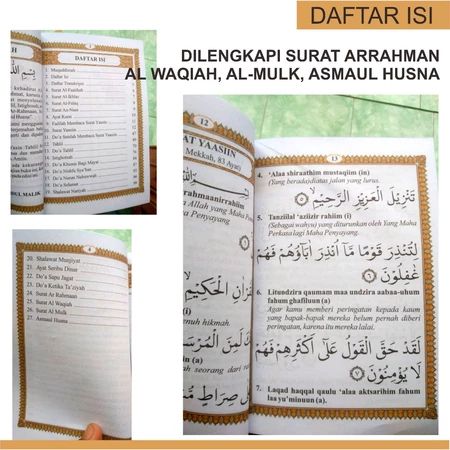 DAFTAR ISI
DILENGKAPI SURAT ARRAHMAN
AL WAQIAH, AL-MULK, ASMAUL HUSNA
3
DAFTAR ISI
1. Muqaddimah
2. Daftar Isi
3. Daftar Transliterasi
4. Surat Al-Faatihah
5. Surat Al-Ikhlas
6. Surat Al-Falaq
7. Surat An-Naas
8. Ayat Kursi
9. Fadilah Membaca Surat Yaasiin
10. Surat Yaasiin
11. Do'a Setelah Membaca Surat Yaasiin
12. Tahlil
13. Do'a Tahlil
14. Istighotsah
15. Do'a Khusus Bagi Mayit
16.
17.
18. Do'a Selamat
19. Shalawat Nariyah
4
20. Shalawat Munjiyat
21. Ayat Seribu Dinar
22. Do'a Sapu Jagat
23. Do'a Ketika Ta'ziyah
24. Surat Ar Rahmaan
25. Surat Al Waqiah
26. Surat Al Mulk
27. Asmaul Husna
12
AT YAASIIN
Mekkah, 83 Ayat)
rahmaanirrahiim
Allah Yang Maha
Penyayang.
الْحَكِيْمِ
nuh hikmah.
لَمِنَ الْمُرْسَلِيْنَ
seorang dari
عَلٰى صِرَاطٍ
13
4. 'Alaa shiraathim mustaqiim (in)
(Yang berada) diatas jalan yang lurus.
تَنْزِيْلَ الْعَزِيْزِ الرَّحِيْمِ ۝٥
5. Tanziilal 'aziizir rahiim (i)
(Sebagai wahyu) yang diturunkan oleh Yang Maha
Perkasa lagi Maha Penyayang.
لِتُنْذِرَ قَوْمًا مَّآ اُنْذِرَ اٰبَاۤؤُهُمْ فَهُمْ
غٰفِلُوْنَ ۝٦
6. Litundzira qaumam maa undzira aabaa-uhum
fahum ghafiluun (a)
Agar kamu memberi peringatan kepada kaum
yang bapak-bapak mereka belum pernah diberi
peringatan, karena itu mereka lalai.
لَقَدْ حَقَّ الْقَوْلُ عَلٰٓى اَكْثَرِهِمْ فَهُمْ
لَا يُؤْمِنُوْنَ ۝٧
7. Laqad haqqal qaulu 'alaa aktsarihim fahum
laa yu'minuun (a).